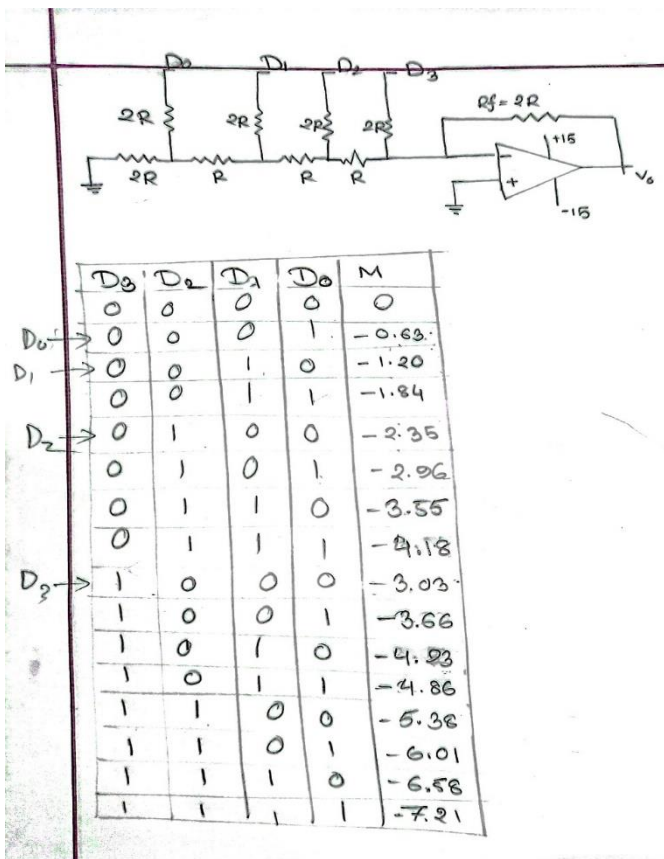 D0 D1 D2 D3
2R 2R 2R 2R Rf = 2R
+15
2R R R R - + V0
-15
D3 D2 D1 D0 M
0 0 0 0 0
D0 → 0 0 0 1 -0.63
D1 → 0 0 1 0 -1.20
0 0 1 1 -1.84
D2 → 0 1 0 0 -2.35
0 1 0 1 -2.96
0 1 1 0 -3.55
0 1 1 1 -4.18
D3 → 1 0 0 0 -3.03
1 0 0 1 -3.66
1 0 1 0 -4.23
1 0 1 1 -4.86
1 1 0 0 -5.38
1 1 0 1 -6.01
1 1 1 0 -6.58
1 1 1 1 -7.21